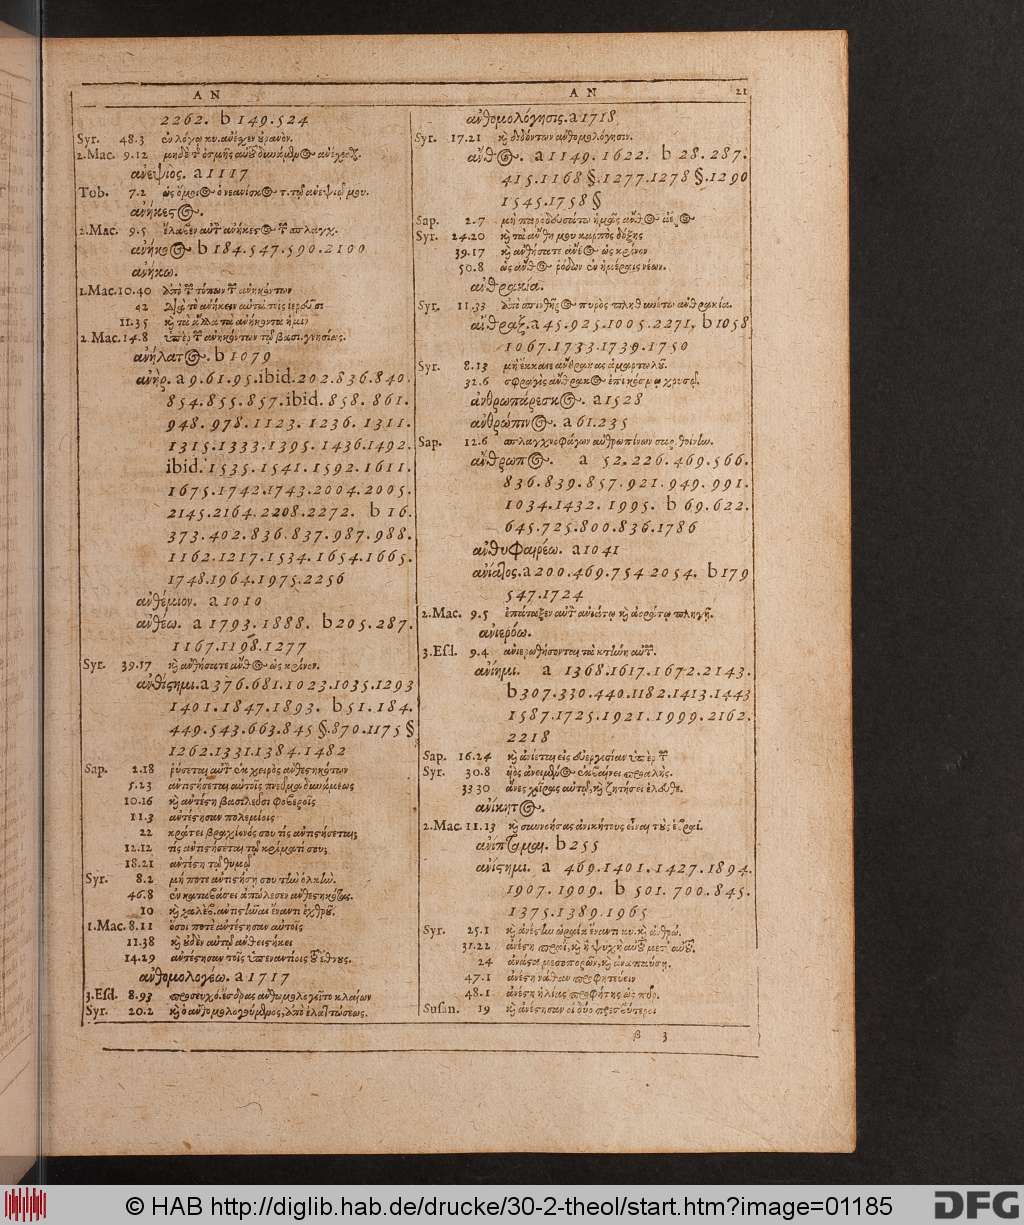 A N
2262. b 149. 524
Syr. 48.3 ἐν λόγῳ κυ. ἀνέσχεν οὐρανόν.
2.Mac. 9.12
ἀνεψιός. a 1117
Tob. 7.2 ὡς ὅμοιος ὁ νεανίσκος τ. τῷ ἀνεψιῷ μου.
ἀνήκεστος.
2.Mac. 9.5 ἔλαβεν αὐτὸν ἀνήκεστος τῶν σπλάγχ.
ἀνήκοος b 184. 547. 590. 2100
ἀνήκω.
1.Mac. 10.40 ἀπὸ τῶν τόπων τῶν ἀνηκόντων
42 διὰ τὸ ἀνήκειν αὐτὰ τοῖς ἱερεῦσι
11.35 καὶ τὰ ἄλλα τὰ ἀνήκοντα ἡμῖν
2.Mac. 14.8 ὑπὲρ τῶν ἀνηκόντων τῷ βασι. γνησίως.
ἀνήλατος. b 1079
ἀνὴρ. a 9. 61. 95. ibid. 202. 836. 840.
854. 855. 857. ibid. 858. 861.
948. 978. 1123. 1236. 1311.
1315. 1333. 1395. 1436. 1492.
ibid. 1535. 1541. 1592. 1611.
1675. 1742. 1743. 2004. 2005.
2145. 2164. 2208. 2272. b 16.
373. 402. 836. 837. 987. 988.
1162. 1217. 1534. 1654. 1665.
1748. 1964. 1975. 2256
ἀνθέμιον. a 1010
ἀνθέω. a 1793. 1888. b 205. 287.
1167. 1198. 1277
Syr. 39.17 καὶ ἀνθήσατε ἄνθος ὡς κρίνον.
ἀνθίστημι. a 376. 681. 1023. 1035. 1293
1401. 1847. 1893. b 51. 184.
449. 543. 663. 845 §. 870. 1175 §
1262. 1331. 1384. 1482
Sap. 2.18 ῥύσεται αὐτὸν ἐκ χειρὸς ἀνθεστηκότων
5.23 ἀντιστήσεται αὐτοῖς πνεῦμα δυνάμεως
10.16 καὶ ἀντέστη βασιλεῦσι φοβεροῖς
11.3 ἀντέστησαν πολεμίοις
22 κράτει βραχίονός σου τίς ἀντιστήσεται;
12.12 τίς ἀντιστήσεται τῷ κρίματί σου;
18.21 ἀντέστη τῷ θυμῷ
Syr. 8.2 μή ποτε ἀντιστήσῃ σου τὴν ὁλκήν.
46.8 ἐν καταβάσει ἀπώλεσεν ἀνθεστηκότας.
10 ἀντιστῆναι ἔναντι ἐχθροῦ.
1.Mac. 8.11 ὅσοι ποτὲ ἀντέστησαν αὐτοῖς
11.38 καὶ οὐδὲν αὐτῷ ἀνθειστήκει
14.29 ἀντέστησαν τοῖς ὑπεναντίοις τοῦ ἔθνους.
ἀνθομολογέω. a 1717
3.Esd. 8.93 προσευχό. ἔσδρας ἀνθωμολογεῖτο κλαίων
Syr. 20.2 καὶ ὁ ἀνθομολογούμενος, ἀπὸ ἐλαττώσεως.
A N 21
ἀνθομολόγησις. a 1718
Syr. 17.21 καὶ διδόντων ἀνθομολόγησιν.
ἄνθος. a 1149. 1622. b 28. 287.
415. 1168 §. 1277. 1278 §. 1290
1545. 1758 §
Sap. 2.7 μὴ παροδευσάτω ἡμᾶς ἄνθος
Syr. 24.20 καὶ τὰ ἄνθη μου καρπὸς δόξης
39.17 καὶ ἀνθήσατε ἄνθος ὡς κρίνον
50.8 ὡς ἄνθος ῥόδων ἐν ἡμέραις νέων.
ἀνθρακία.
Syr. 11.33 ἀπὸ σπινθῆρος πυρὸς πληθυνεῖται ἀνθρακία.
ἄνθραξ. a 45. 925. 1005. 2271. b 1058
1067. 1733. 1739. 1750
Syr. 8.13 μὴ ἔκκαιε ἄνθρακας ἁμαρτωλοῦ.
32.6 σφραγὶς ἄνθρακος ἐπὶ κόσμῳ χρυσοῦ.
ἀνθρωπάρεσκος. a 1528
ἀνθρώπινος. a 61. 235
Sap. 12.6 σπλαγχνοφάγων ἀνθρωπίνων σαρ. θοῖναν.
ἄνθρωπος. a 52. 226. 469. 566.
836. 839. 857. 921. 949. 991.
1034. 1432. 1995. b 69. 622.
645. 725. 800. 836. 1786
ἀνθυφαιρέω. a 1041
ἀνίατος. a 200. 469. 754 2054. b 179
547. 1724
2.Mac. 9.5 ἐπάταξεν αὐτὸν ἀνιάτῳ καὶ ἀοράτῳ πληγῇ.
ἀνιερόω.
3.Esd. 9.4 ἀνιερωθήσονται τὰ κτήνη αὐτῶν.
ἀνίημι. a 1368. 1617. 1672. 2143.
b 307. 330. 440. 1182. 1413. 1443
1587. 1725. 1921. 1999. 2162.
2218
Sap. 16.24 καὶ ἀνίεται εἰς εὐεργεσίαν ὑπὲρ τῶν
Syr. 30.8 υἱὸς ἀνειμένος ἐκβαίνει προαλής.
33 30 ἄνες χεῖρας αὐτῷ, καὶ ζητήσει ἐλευθε.
ἀνίκητος.
2.Mac. 11.13 καὶ συννοήσας ἀνικήτους εἶναι τοὺς ἑβραί.
ἀνίπταμαι. b 255
ἀνίστημι. a 469. 1401. 1427. 1894.
1907. 1909. b 501. 700. 845.
1375. 1389. 1965
Syr. 25.1 καὶ ἀνέστην ὡραία ἔναντι κυ. καὶ ἀνθρώ.
31.22
24 ἀνάστα μεσοπορῶν, καὶ ἀναπαύσῃ.
47.1 ἀνέστη νάθαν προφητεύειν
48.1 ἀνέστη ἠλίας προφήτης ὡς πῦρ.
Susan. 19 καὶ ἀνέστησαν οἱ δύο πρεσβύτεροι
β 3
© HAB http://diglib.hab.de/drucke/30-2-theol/start.htm?image=01185
DFG